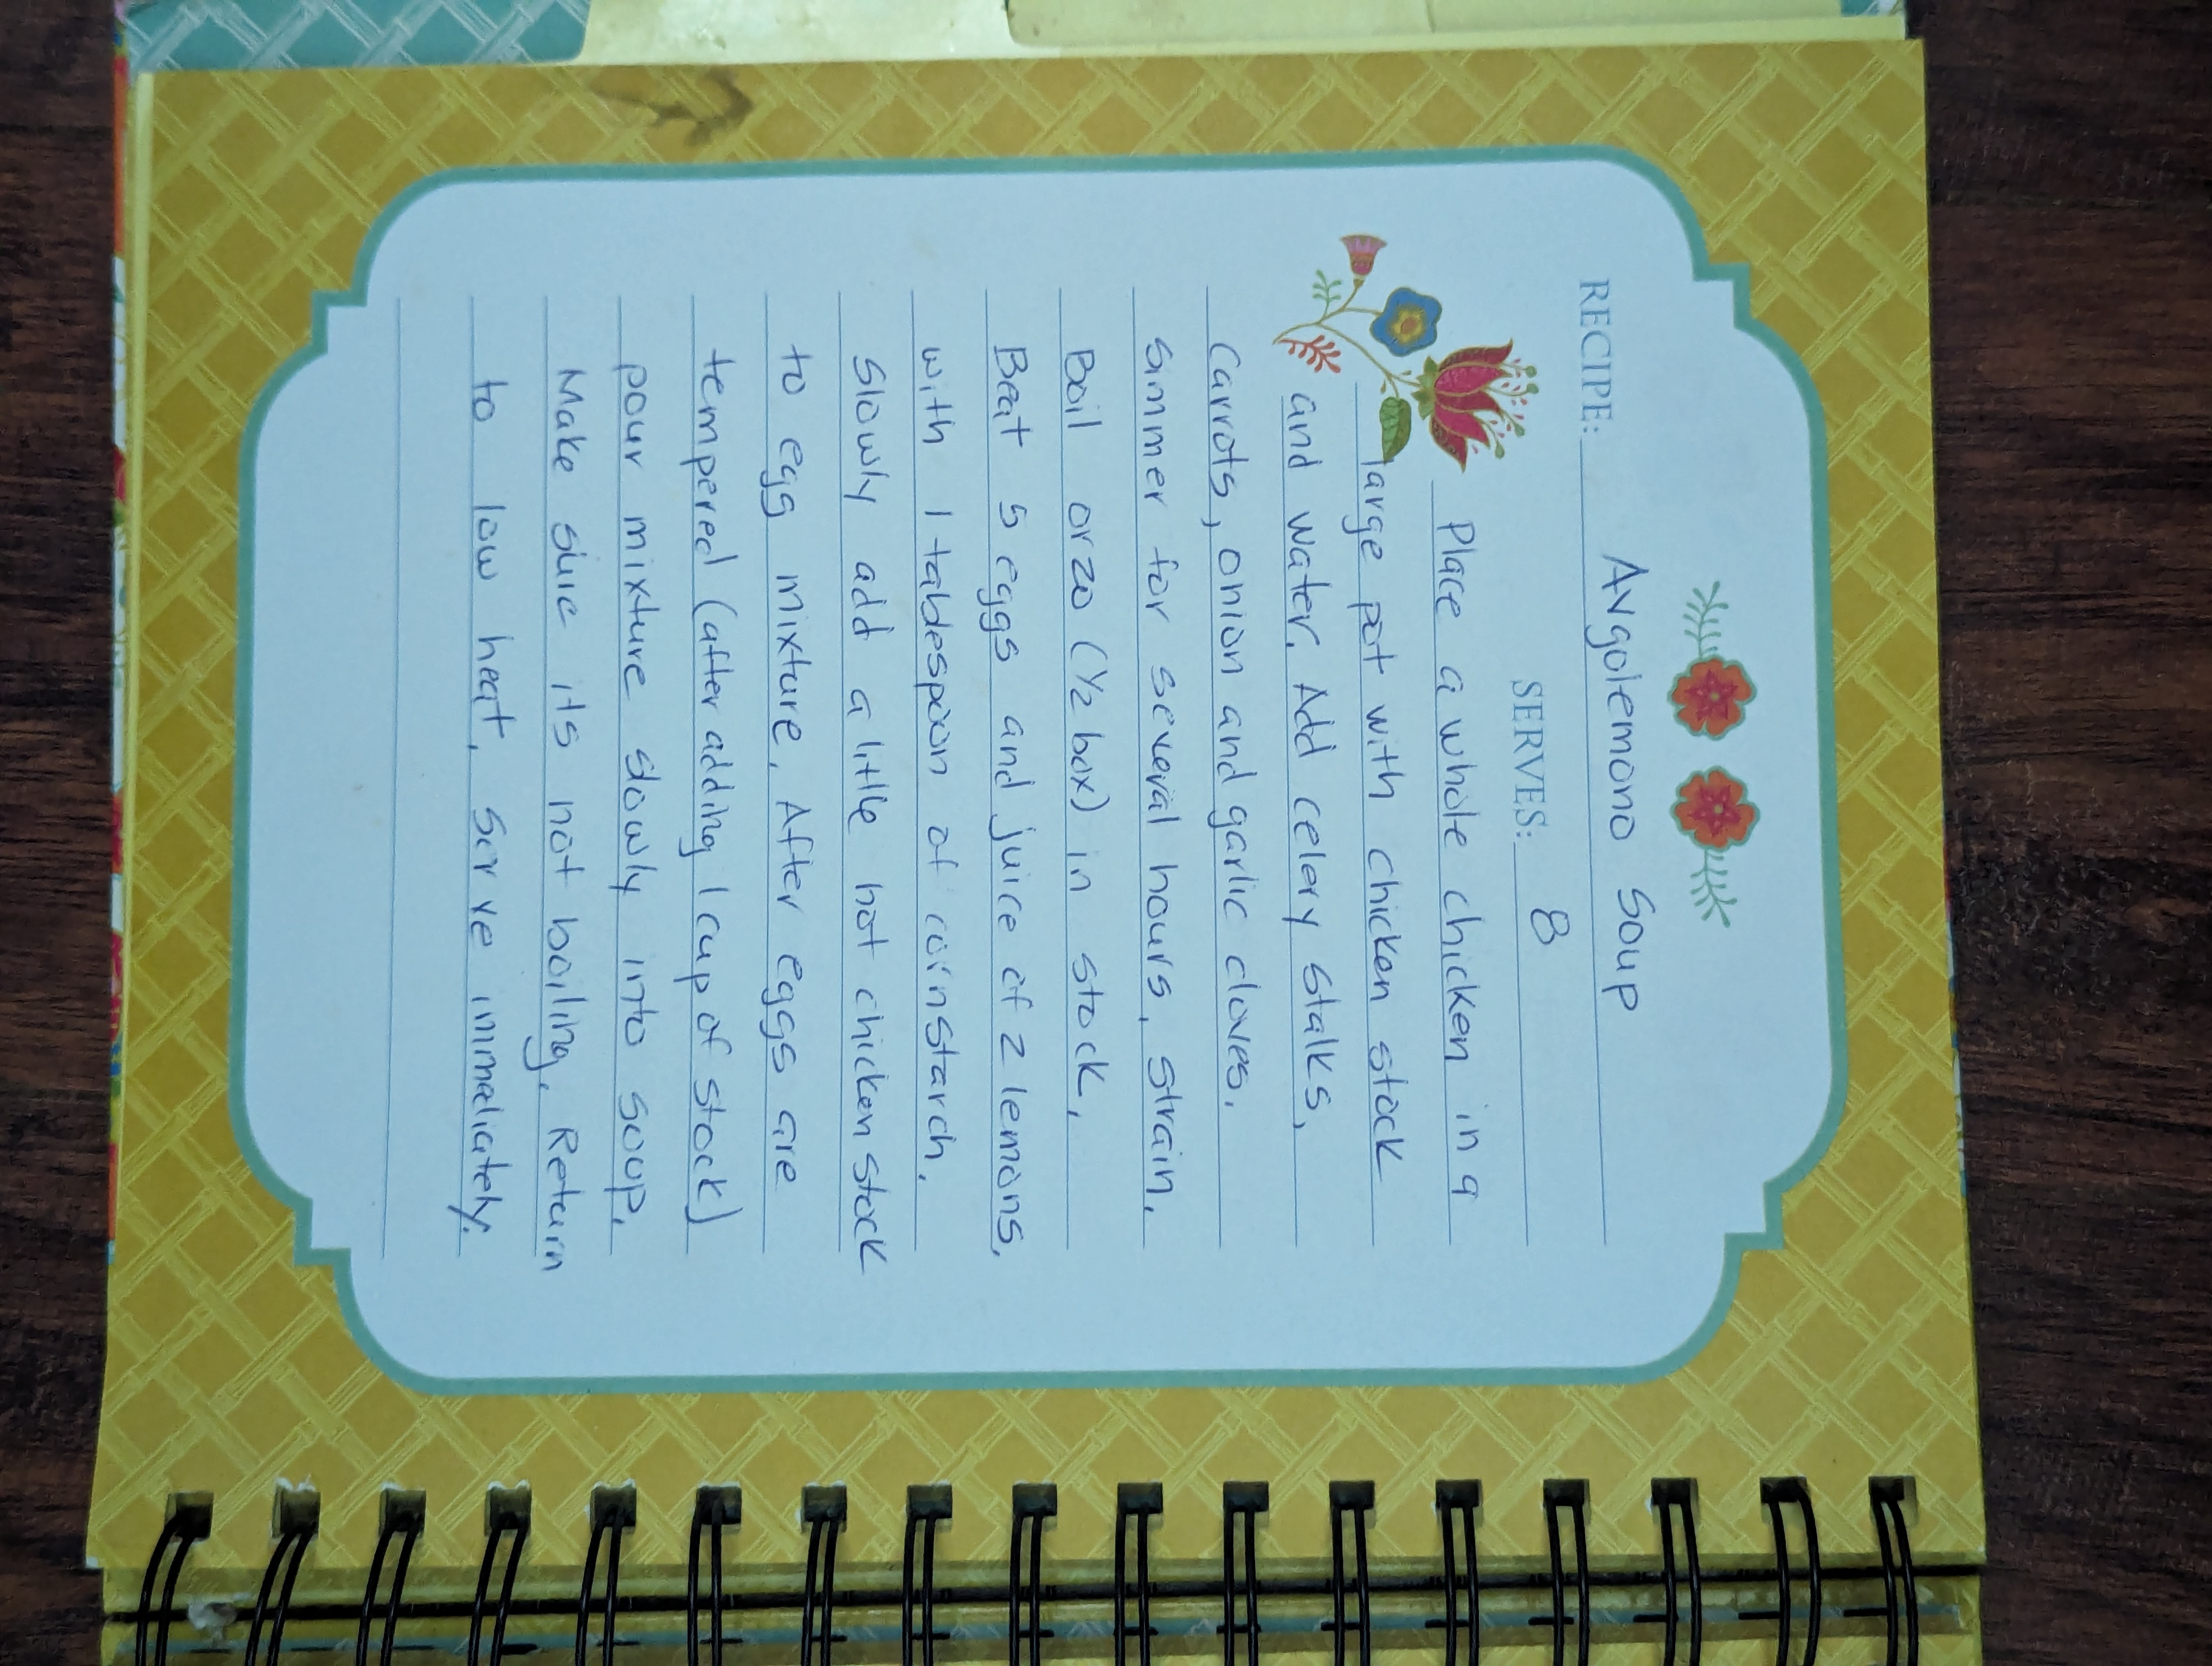 RECIPE: Avgolemono Soup
SERVES: 8
Place a whole chicken in a
large pot with chicken stock
and water. Add celery stalks,
carrots, onion and garlic cloves.
Simmer for several hours, strain.
Boil orzo (1/2 box) in stock.
Beat 5 eggs and juice of 2 lemons,
with 1 tabdespoon of cornstarch.
Slowly add a little hot chicken stock
to egg mixture. After eggs are
tempered (after adding 1 cup of stock)
pour mixture slowly into soup.
Make sure its not boiling. Return
to low heat, serve immediately.